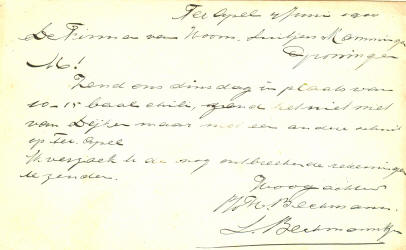 Ter Apel Juni
De Firma van Woom, Luitjens Kamminga
Groningen
M!
Zend ons dinsdag in plaats van
10-15 baal chili, zend het niet met
van Dijken maar met een andere schuit
op Ter Apel
Ik verzoek U de nog ontbreekende rekeningen
te zenden.
Hoogachtend
Beckmann
L. Beckmann